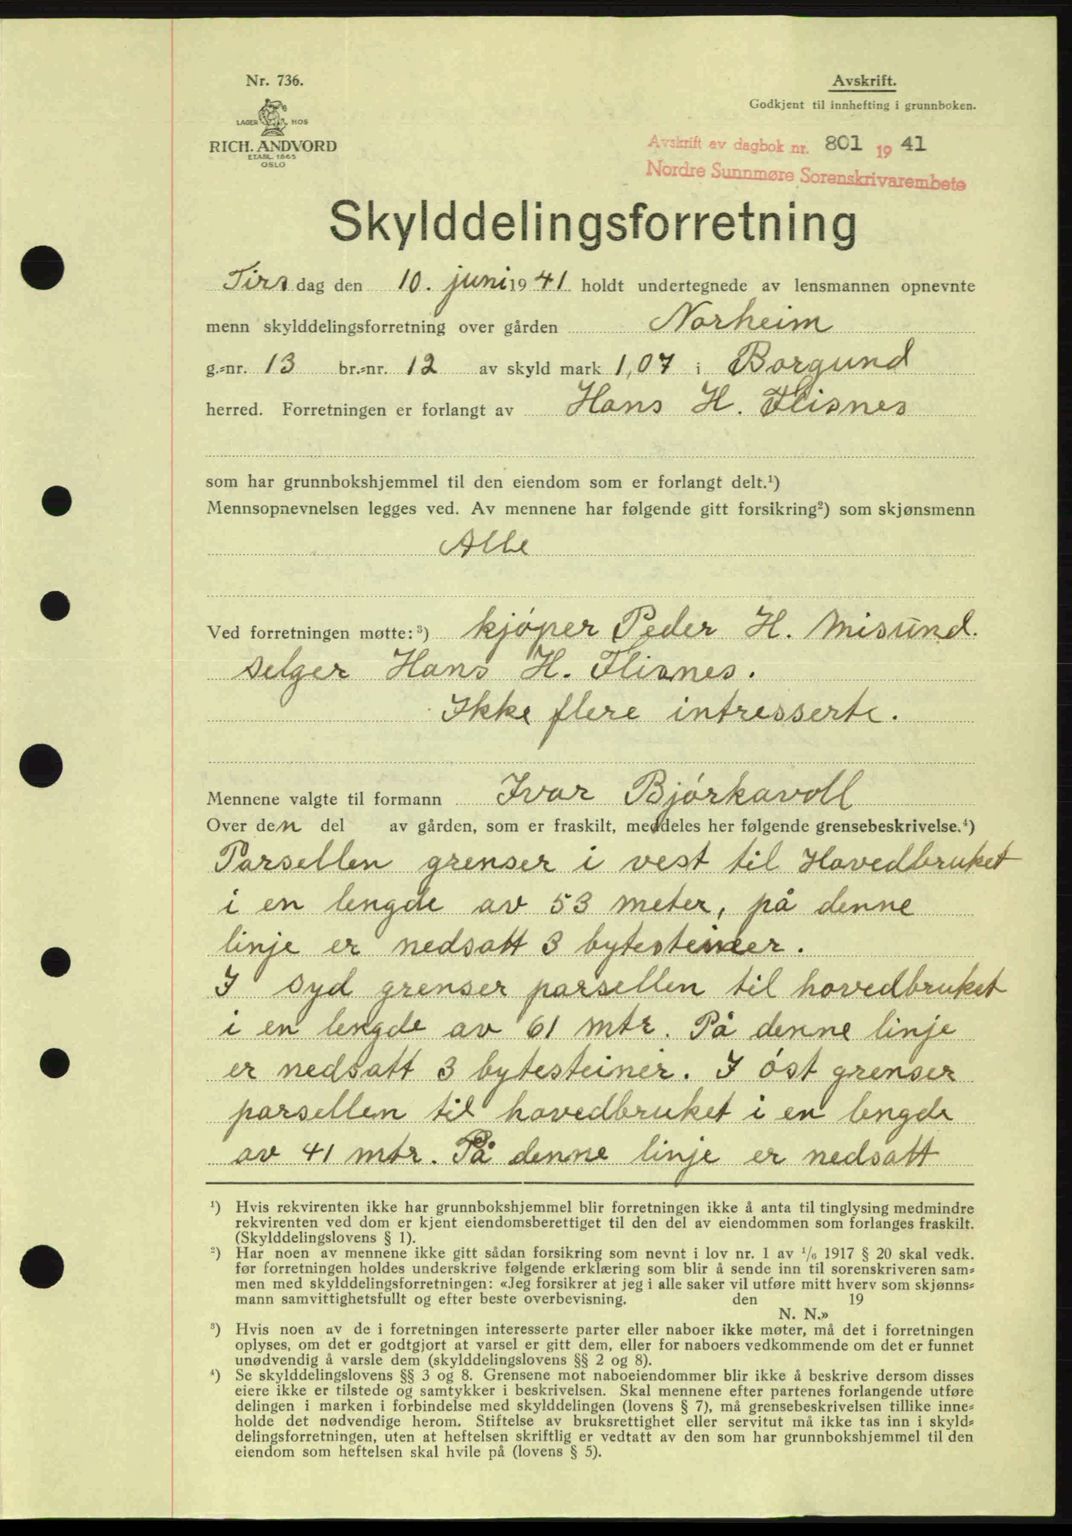 Nr. 736.
LAGER HOS
RICH. ANDVORD
ETABL. 1865
OSLO
Avskrift.
Godkjent til innhefting i grunnboken.
Avskrift av dagbok nr. 801 1941
Nordre Sunnmøre Sorenskrivarembete
Skylddelingsforretning
Tirsdag den 10. juni 1941 holdt undertegnede av lensmannen opnevnte
menn skylddelingsforretning over gården Norheim
g.-nr. 13 br.-nr. 12 av skyld mark 1,07 i Borgund
herred. Forretningen er forlangt av Hans H. Flisnes
som har grunnbokshjemmel til den eiendom som er forlangt delt.¹)
Mennsopnevnelsen legges ved. Av mennene har følgende gitt forsikring²) som skjønsmenn
Alle
Ved forretningen møtte:³) kjóper Peder H. Misund.
selger Hans H. Flisnes.
Ikke flere intresserte.
Mennene valgte til formann Ivar Bjórkavoll
Over den del av gården, som er fraskilt, meddeles her følgende grensebeskrivelse.⁴)
Parsellen grenser i vest til Hovedbruket
i en lengde av 53 meter, på denne
linje er nedsatt 3 bytesteiner.
I syd grenser parsellen til hovedbruket
i en lengde av 61 mtr. På denne linje
er nedsatt 3 bytesteiner. I óst grenser
parsellen til hovedbruket i en lengde
av 41 mtr. På denne linje er nedsatt
¹) Hvis rekvirenten ikke har grunnbokshjemmel blir forretningen ikke å anta til tinglysing medmindre
rekvirenten ved dom er kjent eiendomsberettiget til den del av eiendommen som forlanges fraskilt.
(Skylddelingslovens § 1).
²) Har noen av mennene ikke gitt sådan forsikring som nevnt i lov nr. 1 av 1/6 1917 § 20 skal vedk.
før forretningen holdes underskrive følgende erklæring som blir å sende inn til sorenskriveren sam-
men med skylddelingsforretningen: «Jeg forsikrer at jeg i alle saker vil utføre mitt hverv som skjønns-
mann samvittighetsfullt og efter beste overbevisning. den 19
N. N.»
³) Hvis noen av de i forretningen interesserte parter eller naboer ikke møter, må det i forretningen
oplyses, om det er godtgjort at varsel er gitt dem, eller for naboers vedkommende om det er funnet
unødvendig å varsle dem (skylddelingslovens §§ 2 og 8).
⁴) Se skylddelingslovens §§ 3 og 8. Grensene mot naboeiendommer blir ikke å beskrive dersom disses
eiere ikke er tilstede og samtykker i beskrivelsen. Skal mennene efter partenes forlangende utføre
delingen i marken i forbindelse med skylddelingen (lovens § 7), må grensebeskrivelsen tillike inne-
holde det nødvendige herom. Stiftelse av bruksrettighet eller servitut må ikke tas inn i skyld-
delingsforretningen, uten at heftelsen skriftlig er vedtatt av den som har grunnbokshjemmel til den
eiendom som heftelsen skal hvile på (lovens § 5).